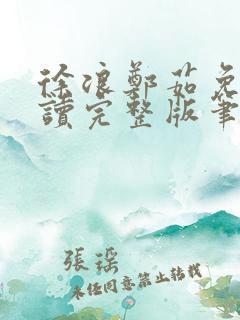 徐浪鄭茹免
讀完整版筆
張瑤
未经同意禁止转载